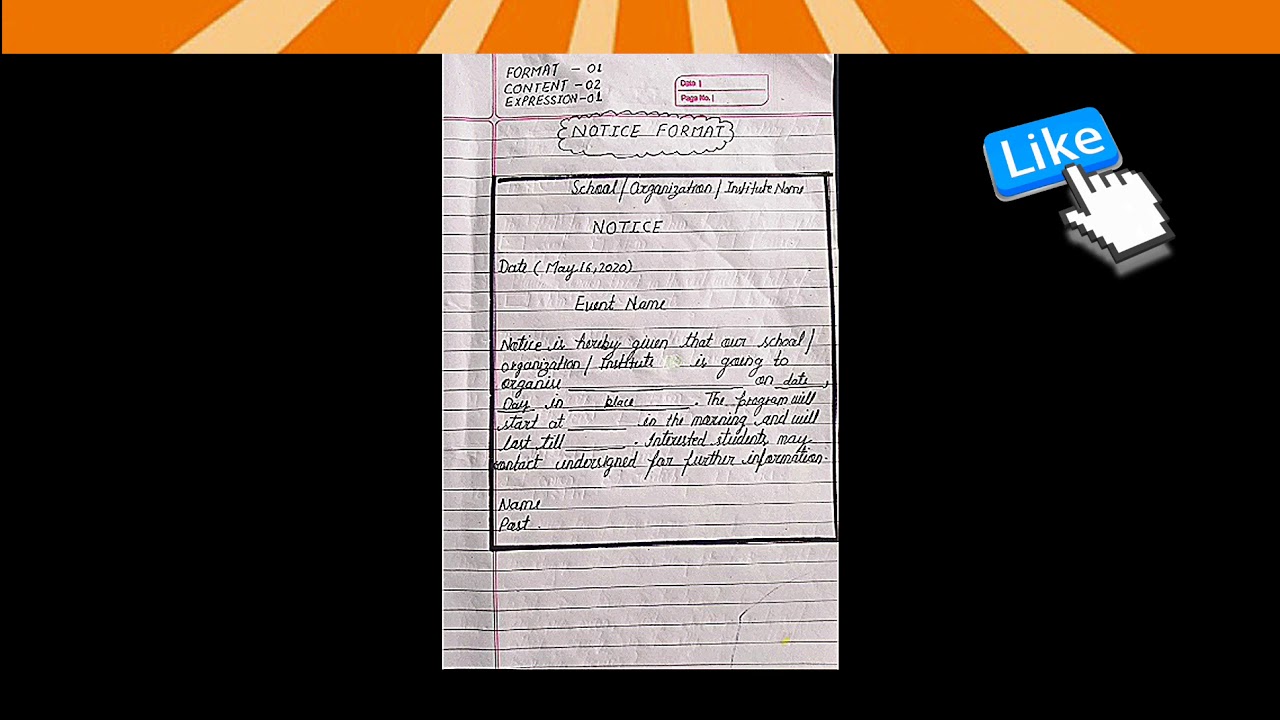 FORMAT - 01
CONTENT - 02
EXPRESSION - 01
Date |
Page No. |
NOTICE FORMAT
Like
School / Organization / Institute Name
NOTICE
Date ( May 16, 2020)
Event Name
Notice is hereby given that our school /
organization / Institute is going to
organise ________ on date,
Day in place . The program will
start at ______ in the morning and will
last till ______ . Interested students may
contact undersigned for further information.
Name
Post.